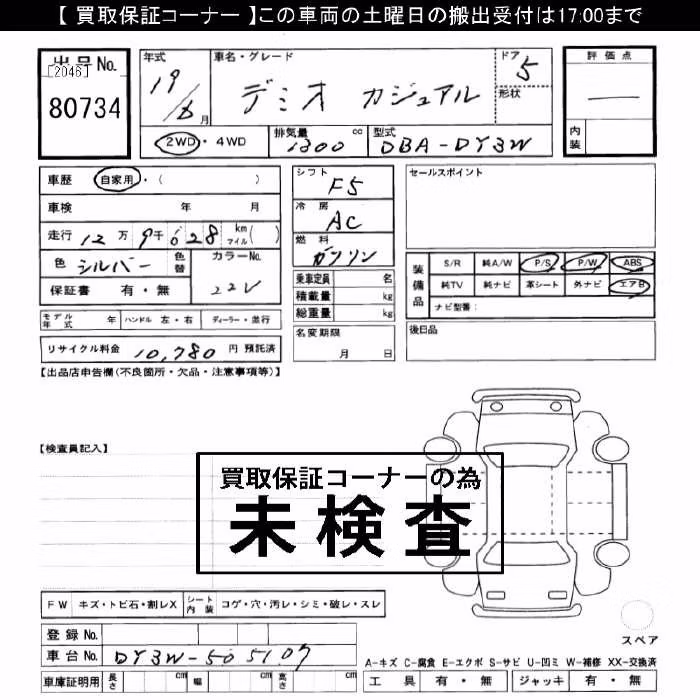 【 買取保証コーナー 】この車両の土曜日の搬出受付は17:00まで
出品No.
[2046]
80734
年式
19/6月
車名・グレード
デミオ カジュアル
ドア
5
形状
評価点
内装
2WD・4WD
排気量
1300 cc
型式
DBA-DY3W
車歴 自家用・( )
車検 年 月
走行 12万9千628 km マイル( )
色 シルバー
色替
カラーNo.
22V
保証書 有・無
シフト
F5
冷房
AC
燃料
ガソリン
乗車定員 名
積載量 kg
総重量 kg
セールスポイント
装備品
S/R 純A/W P/S P/W ABS
純TV 純ナビ 革シート 外ナビ エアB
ナビ型番:
モデル年式 年 ハンドル 左・右 ディーラー・並行
名変期限
月 日
後日品
リサイクル料金 10,780 円 預託済
【出品店申告欄(不良箇所・欠品・注意事項等)】
【検査員記入】
買取保証コーナーの為
未検査
FW キズ・トビ石・割レX シート内装 コゲ・穴・汚レ・シミ・破レ・スレ
スペア
登録No.
車台No. DY3W-505107
A-キズ C-腐食 E-エクボ S-サビ U-凹ミ W-補修 XX-交換済
車庫証明用 長さ cm 幅 cm 高さ cm
工具 有・無 ジャッキ 有・無